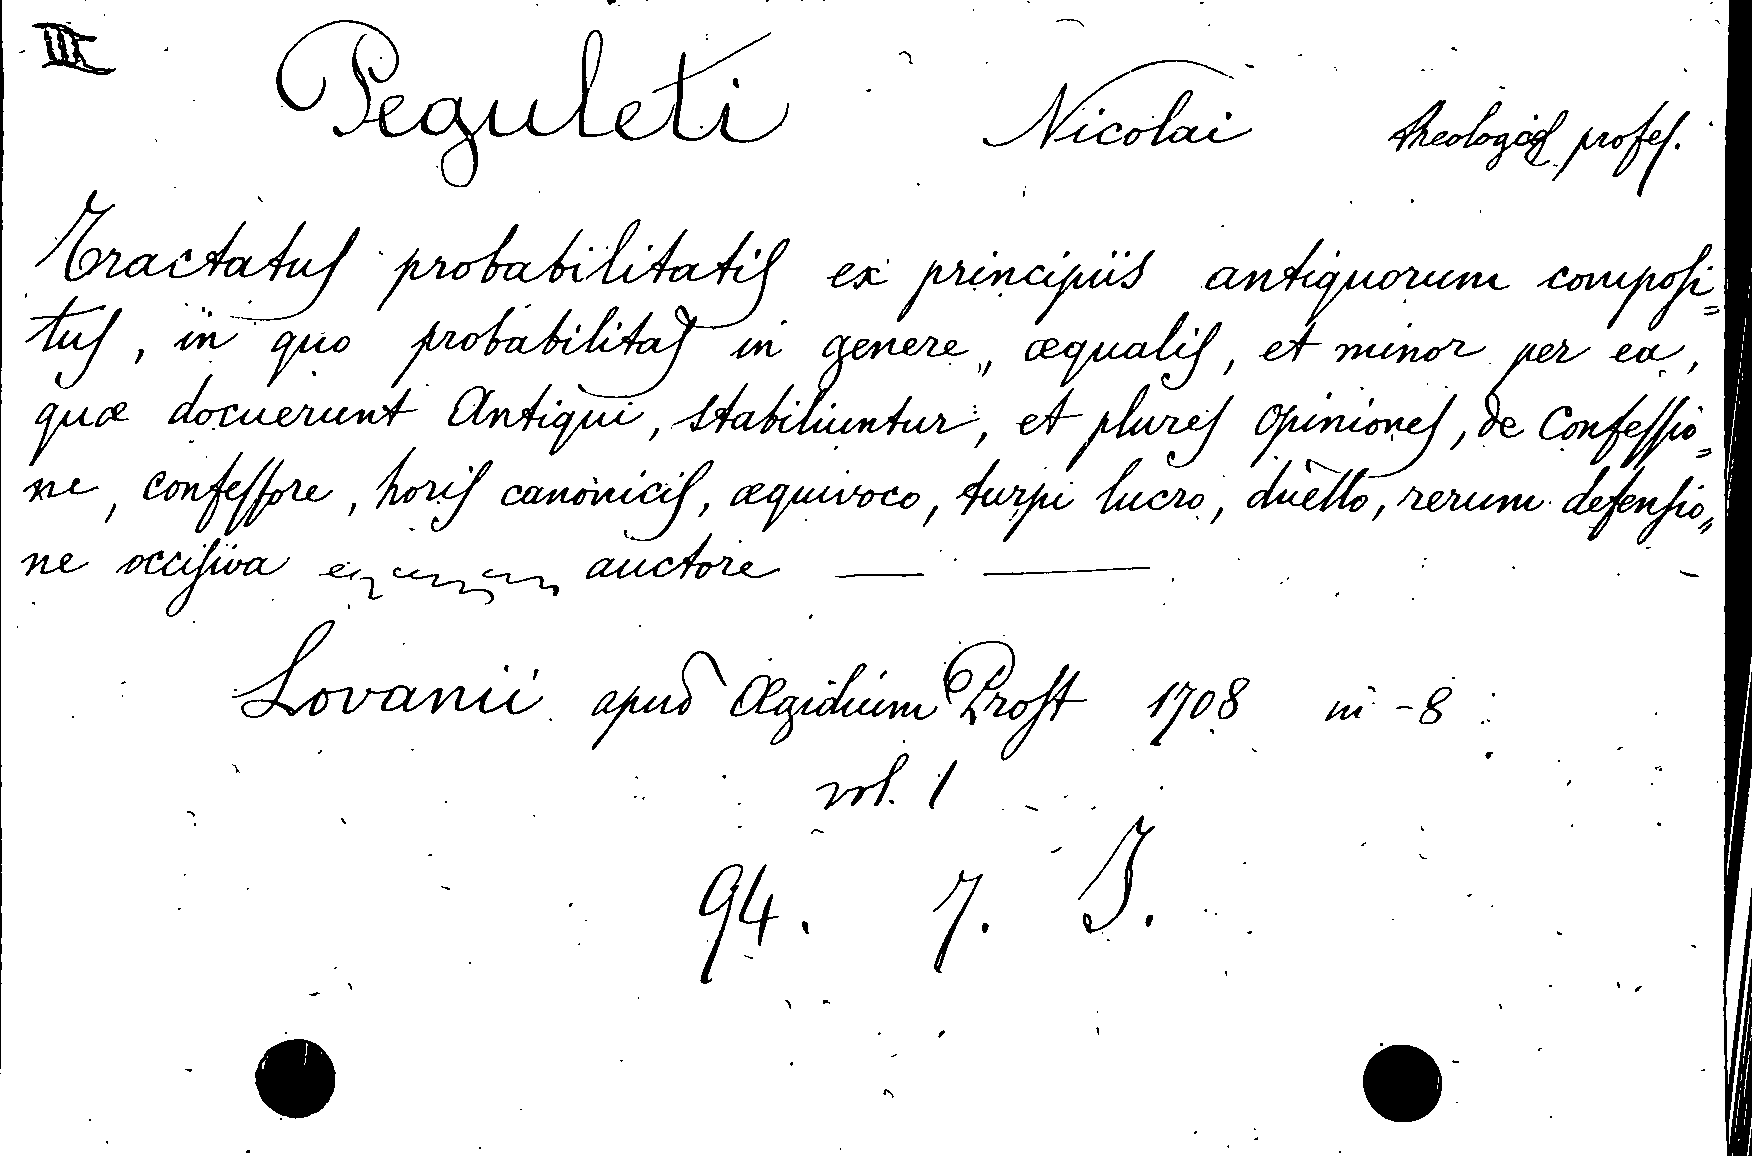 III
Peguleti Nicolai theologiæ profes.
Tractatus probabilitatis ex principiis antiquorum composi=
tus, in quo probabilitas in genere, æqualis, et minor per ea,
quæ docuerunt Antiqui, stabiliuntur, et plures opiniones, de Confessio=
ne, confessore, horis canonicis, æquivoco, turpi lucro, duello, rerum defensio=
ne occisiva auctore — —
Lovanii apud Ægidium Prost 1708 in -8
vol. 1
94. 7. J.